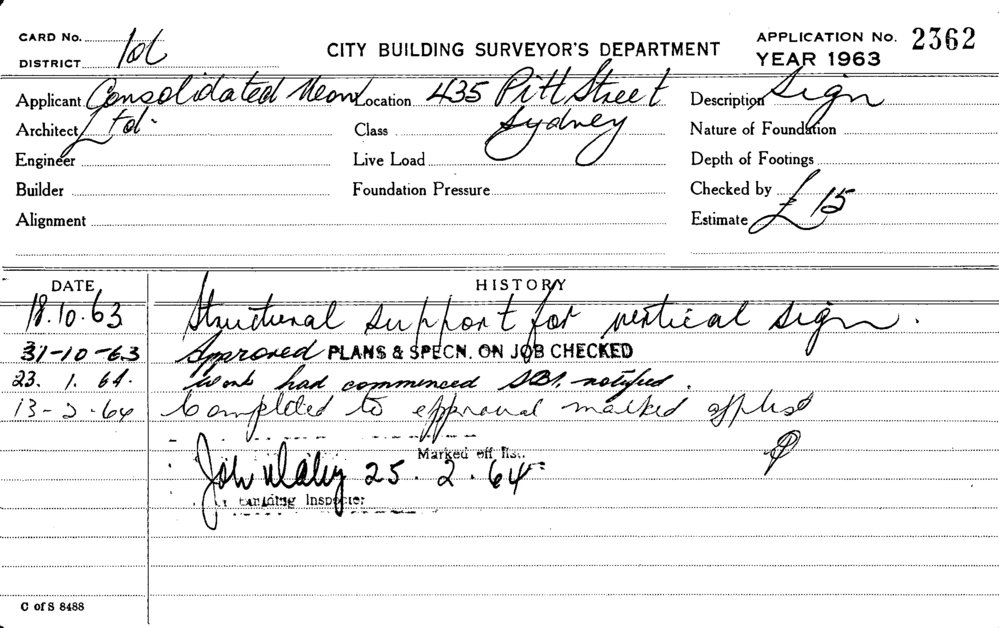 CARD No.
DISTRICT
CITY BUILDING SURVEYOR'S DEPARTMENT
APPLICATION No. 2362
YEAR 1963
Applicant Consolidated Neon Location 435 Pitt Street Description Sign
Architect Ltd. Class Sydney Nature of Foundation
Engineer Live Load Depth of Footings
Builder Foundation Pressure Checked by
Alignment Estimate £15
DATE HISTORY
18.10.63 Structural support for vertical sign.
31-10-63 Approved PLANS & SPECN. ON JOB CHECKED
23. 1. 64. Work had commenced notified.
13-2-64 Completed to approval marked off list
Marked off list.
25.2.64
Building Inspector
C of S 8488